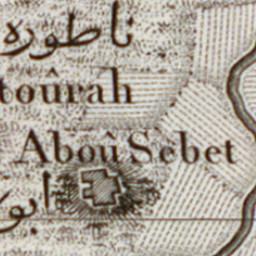 ناطوره
toûrah
Aboû Sebet
ابو